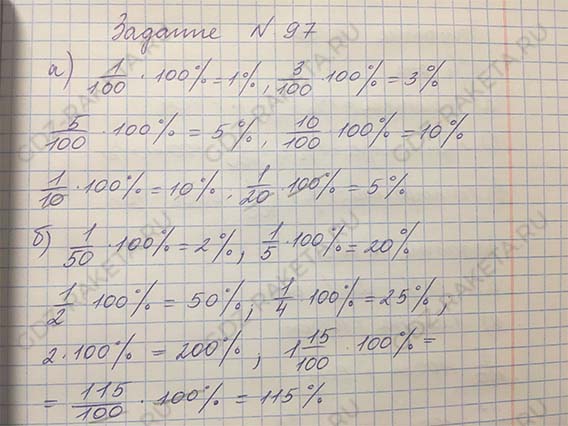 Задание N 97
а) 1/100 · 100% = 1%, 3/100 · 100% = 3%
5/100 · 100% = 5%, 10/100 · 100% = 10%
1/10 · 100% = 10%, 1/20 · 100% = 5%
б) 1/50 · 100% = 2%, 1/5 · 100% = 20%
1/2 100% = 50%, 1/4 100% = 25%,
2 · 100% = 200%, 1 15/100 · 100% =
= 115/100 · 100% = 115%
GDZ-RAKETA.RU